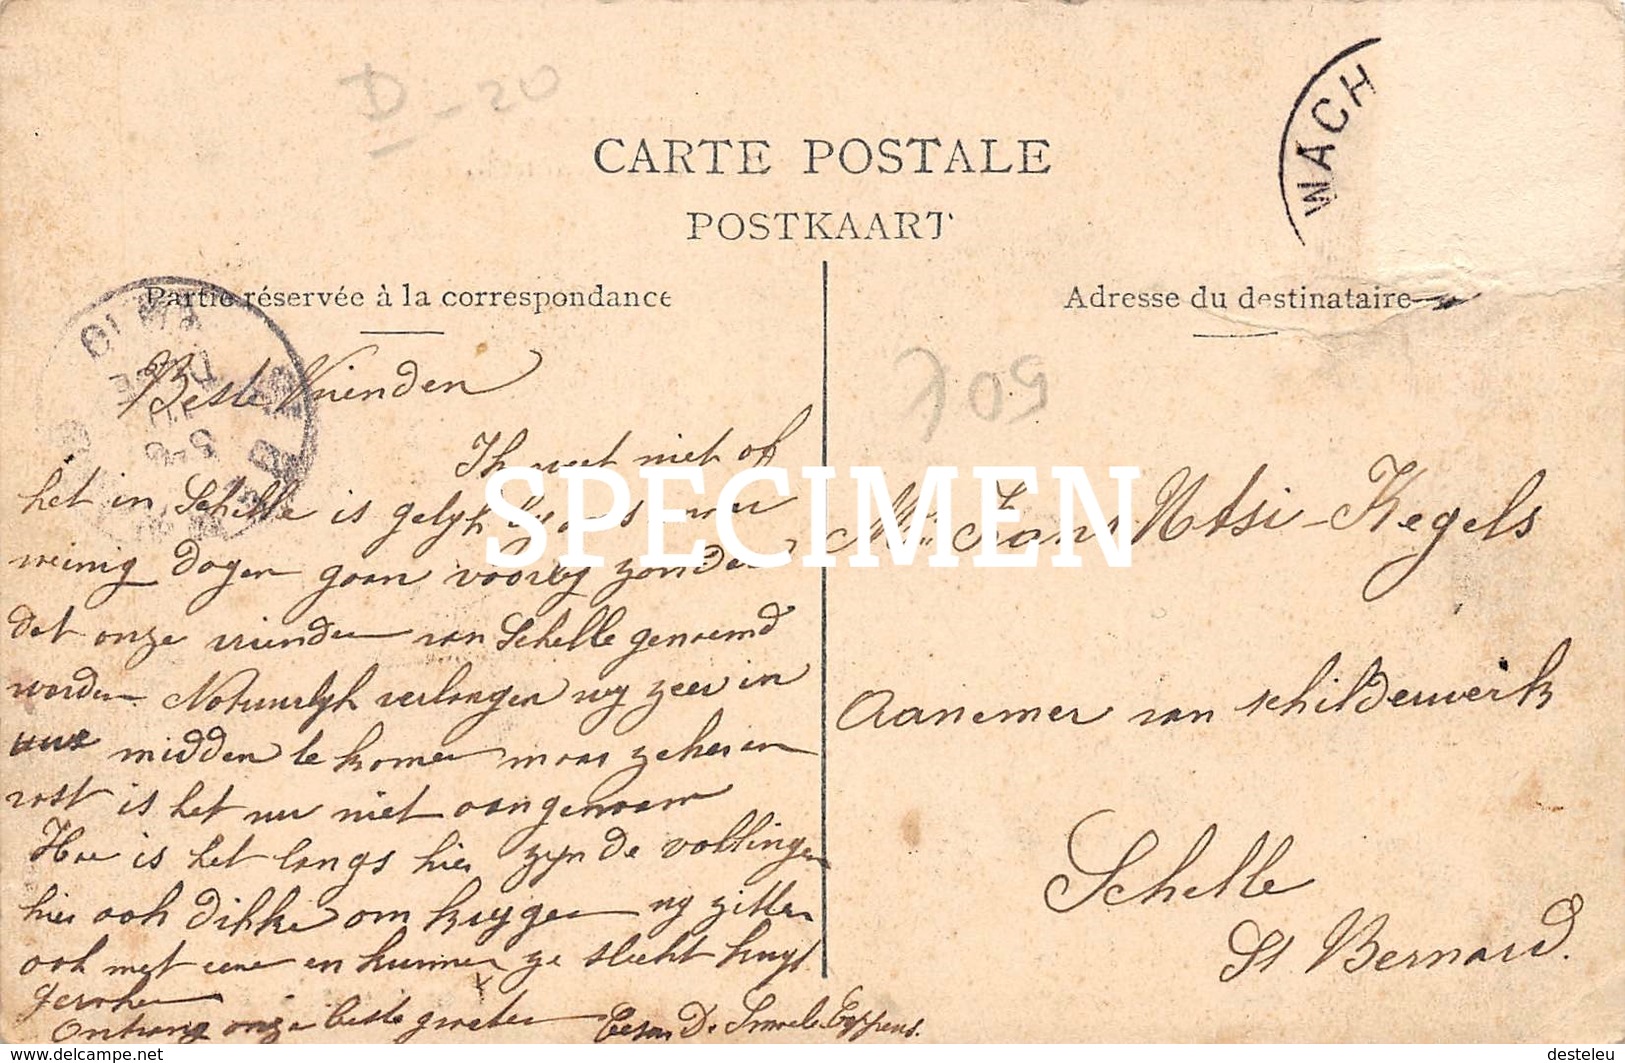 D - 20
CARTE POSTALE
POSTKAART
WACH
Partie réservée à la correspondance
Adresse du destinataire
50
Beste Vrienden
Ik weet niet of
het in Schelle is gelyk by ons
weinig dagen gaan voorby zonder
dat onze vrienden van Schelle genoemd
worden Natuurlyk verlangen wy zeer in
uwe midden te komen maar zeker en
vast is het nu niet aangenaam
Hoe is het langs hier zyn de
hier ook dikke om krygen wy zitten
ook met eene en kunnen ze slecht kwyt
geraken
Ontvang onze beste groeten
SPECIMEN
Frans Kegels
Aanemer van schilderwerk
Schelle
St Bernard.
www.delcampe.net
desteleu